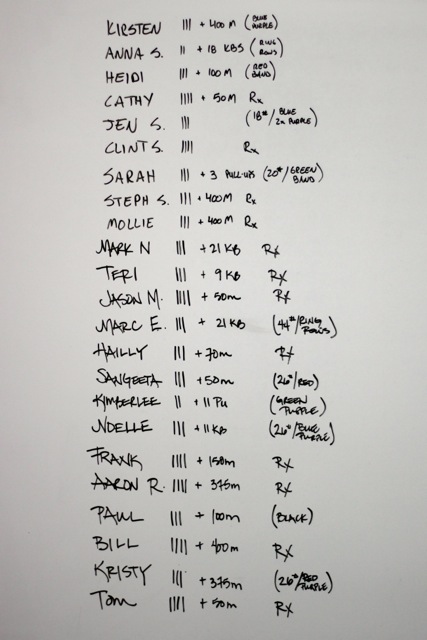 KIRSTEN III + 400 M (BLUE PURPLE)
ANNA S. II + 18 KBS (RING ROWS)
HEIDI III + 100 M (RED BAND)
CATHY IIII + 50 M Rx
JEN S. III (18#/BLUE 2x PURPLE)
CLINT S. IIII Rx
SARAH III + 3 PULL-UPS (20#/GREEN BAND)
STEPH S. III + 400M Rx
MOLLIE III + 400M Rx
MARK N III + 21 KB RX
TERI III + 9 KB RX
JASON M. IIII + 50m RX
MARC E. III + 21 KB (44#/RING ROWS)
HAILLY III + 70m RX
SANGEETA III + 50m (26#/RED)
KIMBERLEE II + 11 PU (GREEN PURPLE)
NOELLE III + 11 KB (26#/BLUE PURPLE)
FRANK IIII + 150m RX
AARON R. IIII + 375m RX
PAUL III + 100m (BLACK)
BILL IIII + 400m RX
KRISTY III + 375m (26#/RED PURPLE)
Tom IIII + 50m RX